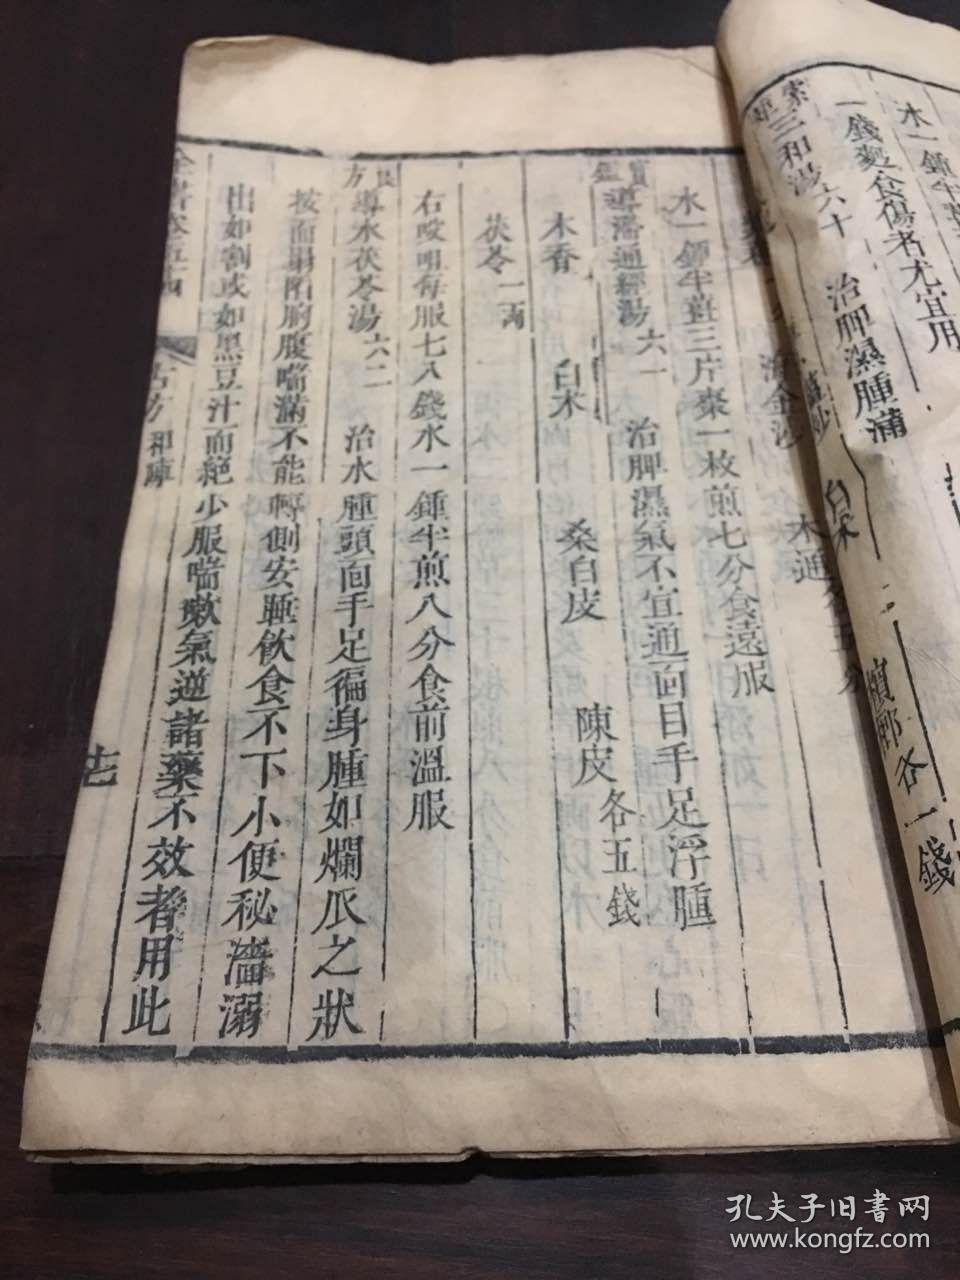 水一鍾半
一錢麪食傷者尤宜用
三和湯 六十 治脾濕腫滿
白朮 檳榔各一錢
海金沙 木通各五分
水一鍾半薑三片棗一枚煎七分食遠服
寶鑑導滯通經湯 六一 治脾濕氣不宣通面目手足浮腫
木香 白朮 桑白皮 陳皮各五錢
茯苓一兩
右㕮咀每服七八錢水一鍾半煎八分食前溫服
良方導水茯苓湯 六二 治水腫頭面手足徧身腫如爛瓜之狀
按而塌陷胷腹喘滿不能轉側安睡飲食不下小便秘濇溺
出如割或如黑豆汁而絕少服喘嗽氣逆諸藥不效者用此
全書卷五十四 古方 和陣 十七
孔夫子旧书网
www.kongfz.com